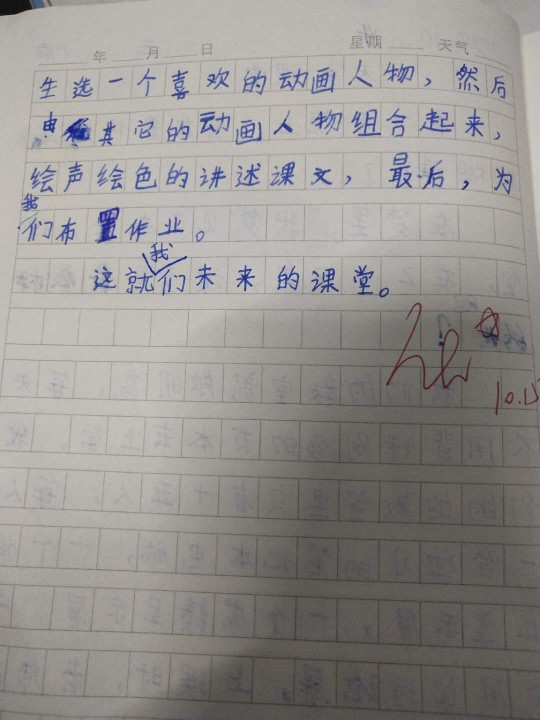 年 月 日 星期 天气
生选一个喜欢的动画人物，然后
由其它的动画人物组合起来，
绘声绘色的讲述课文，最后，为
我们布置作业。
这就我们未来的课堂。
10.15